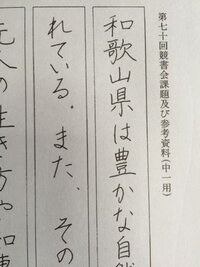 第七十回競書会課題及び参考資料(中一用)
和歌山県は豊かな自然
れている。また、その
元への生き方や和東